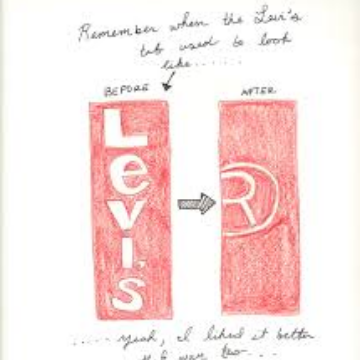 Remember when the Levi's
tab used to look
like......
BEFORE
AFTER
Levi's
R
..... yeah, I liked it better
way too...